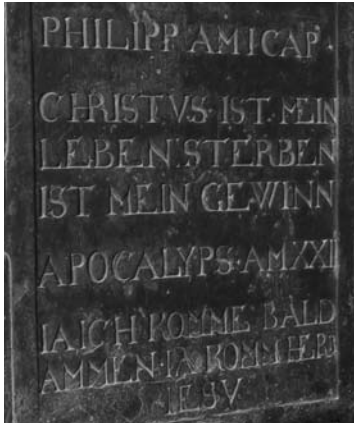 PHILIPP·AM I CAP·
CHRISTVS·IST·MEIN
LEBEN·STERBEN
IST MEIN GEWINN
APOCALYPS·AM XXI
IA ICH KOMME BALD
AMMEN·IA KOMM HER
IESV